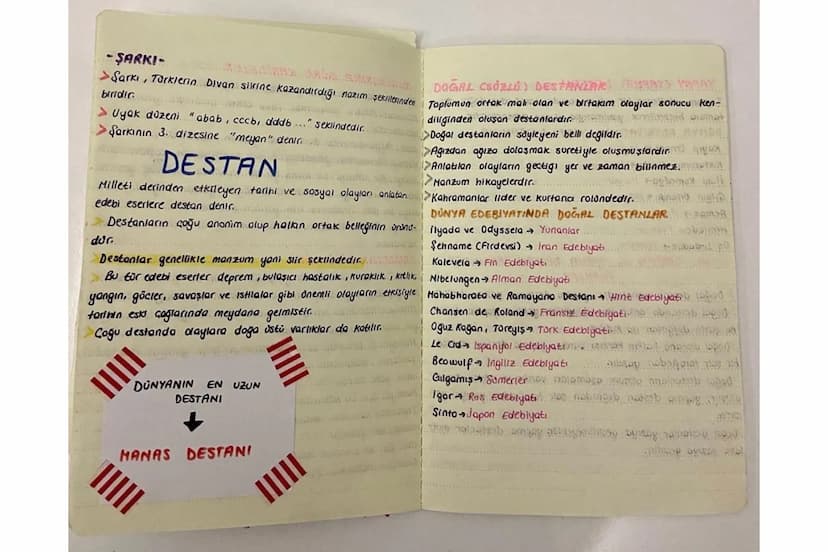 -ŞARKI-
> Şarkı, Türklerin Divan şiirine kazandırdığı nazım şekillerinden
biridir.
> Uyak düzeni "abab, cccb, dddb ..." şeklindedir.
> Şarkının 3. dizesine "meyan" denir.
DESTAN
Milleti derinden etkileyen tarihi ve sosyal olayları anlatan
edebi eserlere destan denir.
> Destanların çoğu anonim olup halkın ortak belleğinin ürünü-
dür.
> Destanlar genellikle manzum yani şiir şeklindedir.
> Bu tür edebi eserler deprem, bulaşıcı hastalık, kuraklık, kıtlık,
yangın, göçler, savaşlar ve istilalar gibi önemli olayların etkisiyle
tarihin eski çağlarında meydana gelmiştir.
> Çoğu destanda olaylara doğa üstü varlıklar da katılır.
DÜNYANIN EN UZUN
DESTANI
↓
MANAS DESTANI
DOĞAL (SÖZLÜ) DESTANLAR
Toplumun ortak malı olan ve birtakım olaylar sonucu ken-
diliğinden oluşan destanlardır.
> Doğal destanların söyleyeni belli değildir.
> Ağızdan ağıza dolaşmak suretiyle oluşmuşlardır.
> Anlatılan olayların geçtiği yer ve zaman bilinmez.
> Manzum hikayelerdir.
> Kahramanlar lider ve kurtarıcı rolündedir.
DÜNYA EDEBİYATINDA DOĞAL DESTANLAR
İlyada ve Odysseia → Yunanlar
Şehname (Firdevsi) → İran Edebiyatı
Kalevela → Fin Edebiyatı
Nibelungen → Alman Edebiyatı
Mahabharata ve Ramayana Destanı → Hint Edebiyatı
Chansen de Roland → Fransız Edebiyatı
Oğuz Kağan, Türeyiş → Türk Edebiyatı
Le Cid → İspanyol Edebiyatı
Beowulf → İngiliz Edebiyatı
Gılgamış → Sümerler
İgor → Rus Edebiyatı
Şinto → Japon Edebiyatı